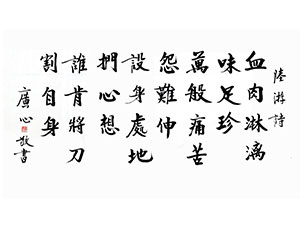 陸游詩
血肉淋漓
味足珍
萬般痛苦
怨難伸
設身處地
捫心想
誰肯將刀
割自身
廣心敬書